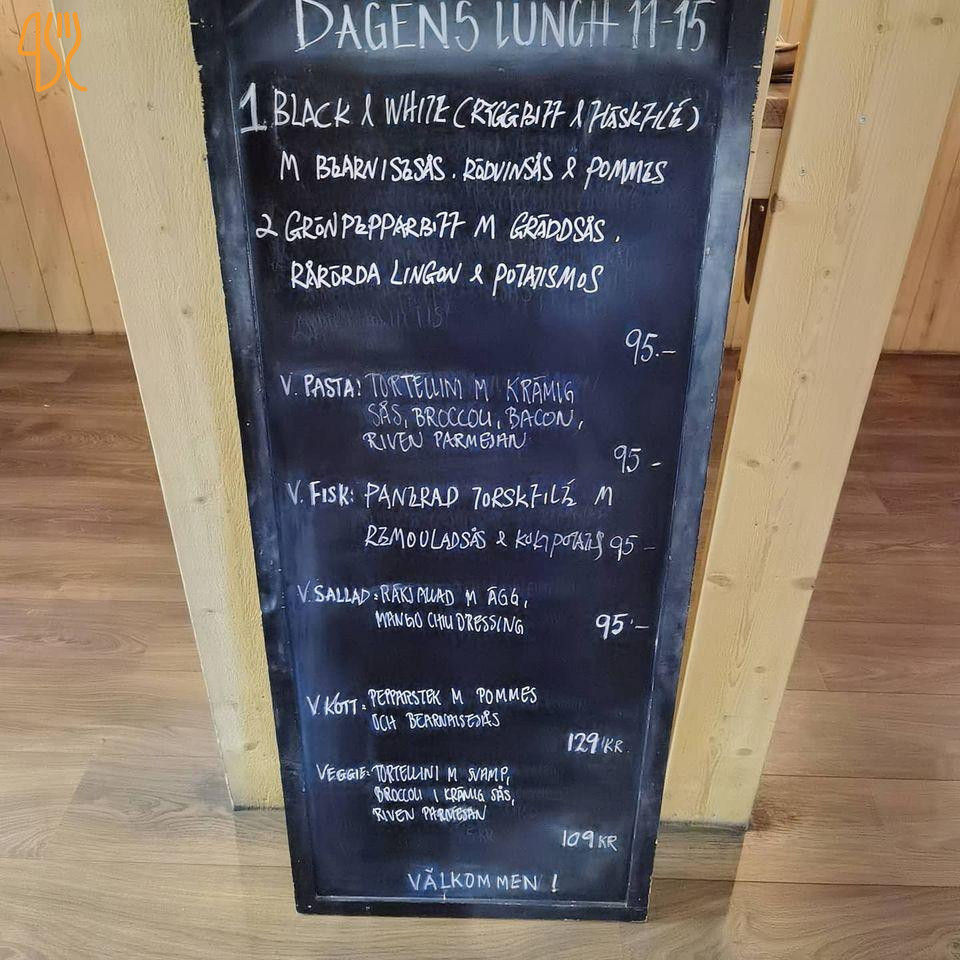 DAGENS LUNCH 11-15
1. BLACK & WHITE (RYGGBIFF & FLÄSKFILÉ)
M BEARNISESÅS. RÖDVINSÅS & POMMES
2 GRÖNPEPPARBIFF M GRÄDDSÅS.
RÅRÖRDA LINGON & POTATISMOS
95.-
V. PASTA: TORTELLINI M KRÄMIG
SÅS, BROCCOLI, BACON,
RIVEN PARMESAN
95 -
V. FISK: PANERAD TORSKFILÉ M
REMOULADSÅS & KOKPOTATIS 95 -
V. SALLAD: RÄKSALLAD M ÄGG,
MANGO CHILIDRESSING
95:-
V. KÖTT: PEPPARSTEK M POMMES
OCH BEARNAISESÅS
129 KR.
VEGGIE: TORTELLINI M SVAMP,
BROCCOLI I KRÄMIG SÅS,
RIVEN PARMESAN
109 KR
VÄLKOMMEN!